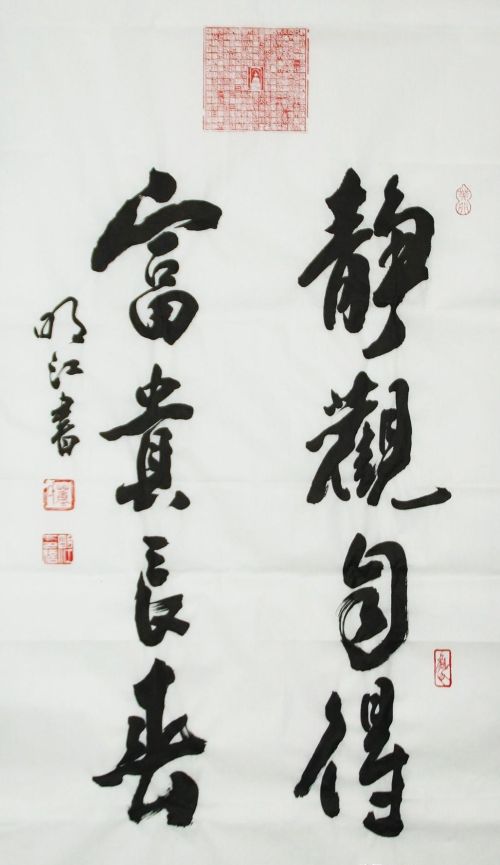 靜觀自得
富貴長春
明江書